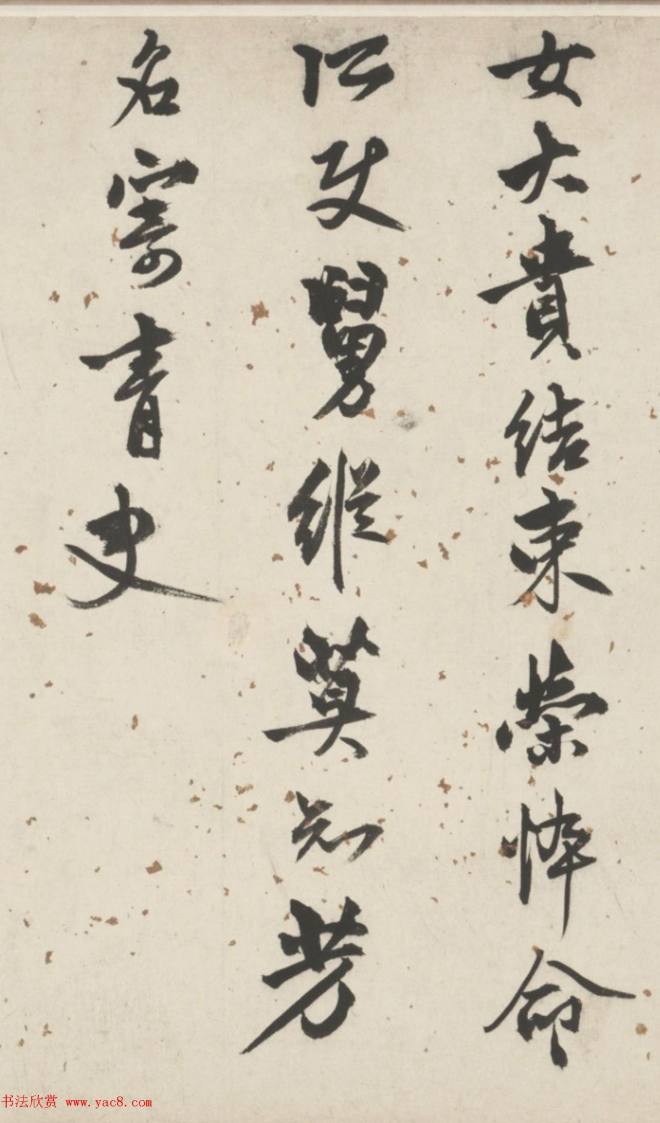 女大貴結束榮悴命
所使舅縱莫知芳
名寄青史
书法欣赏 www.yac8.com